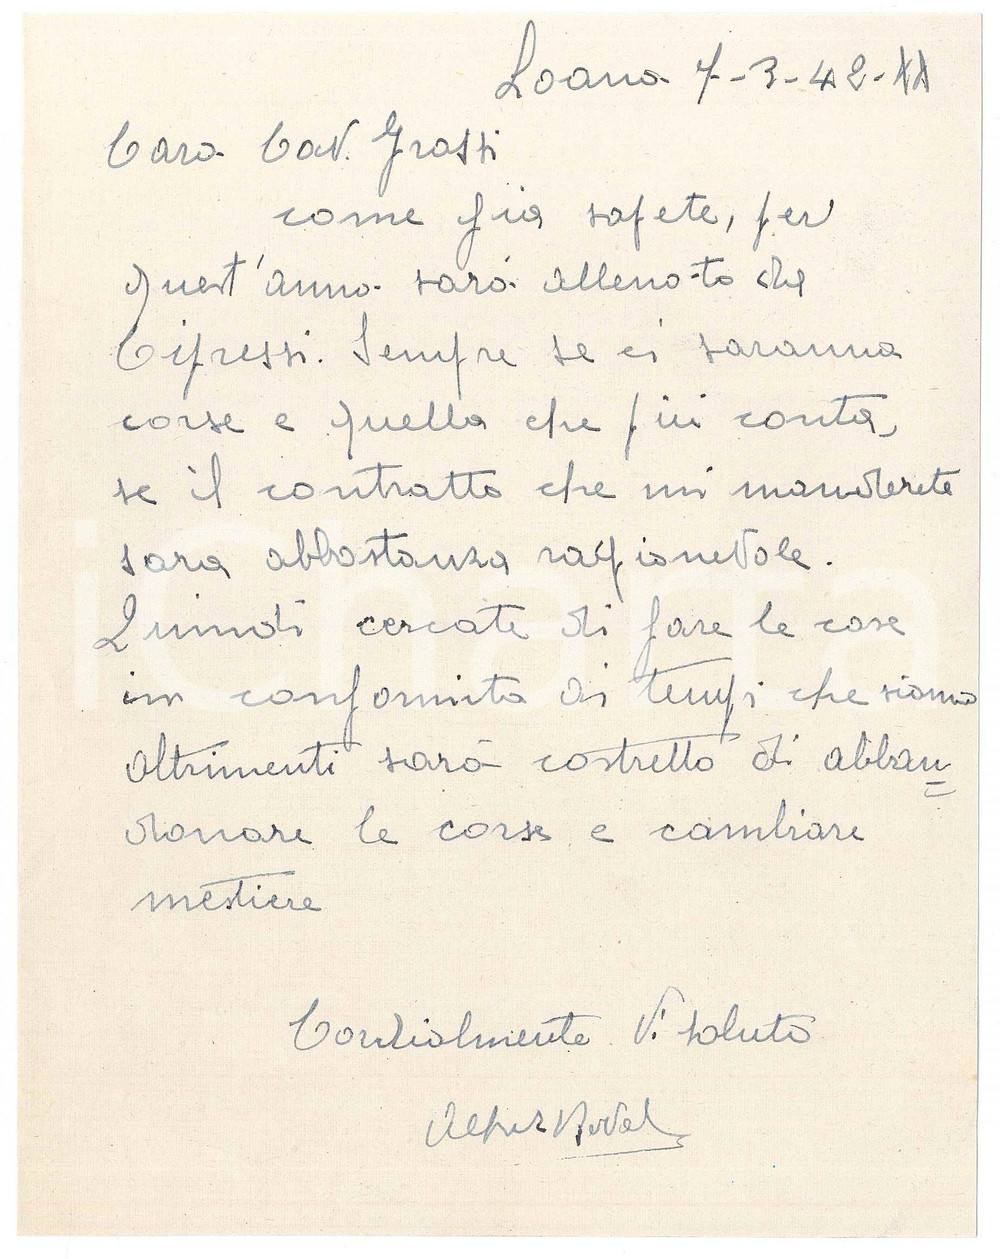 Loano 7-3-42-XX
Caro Cav. Grassi
come già sapete, per
quest'anno sarò allenato da
Cipressi. Sempre se ci saranno
corse e quello che più conta,
se il contratto che mi manderete
sarà abbastanza ragionevole.
Quindi cercate di fare le cose
in conformità di tempi che siamo
altrimenti sarò costretto di abban=
donare le corse e cambiare
mestiere
Cordialmente Vi saluto
iCharta